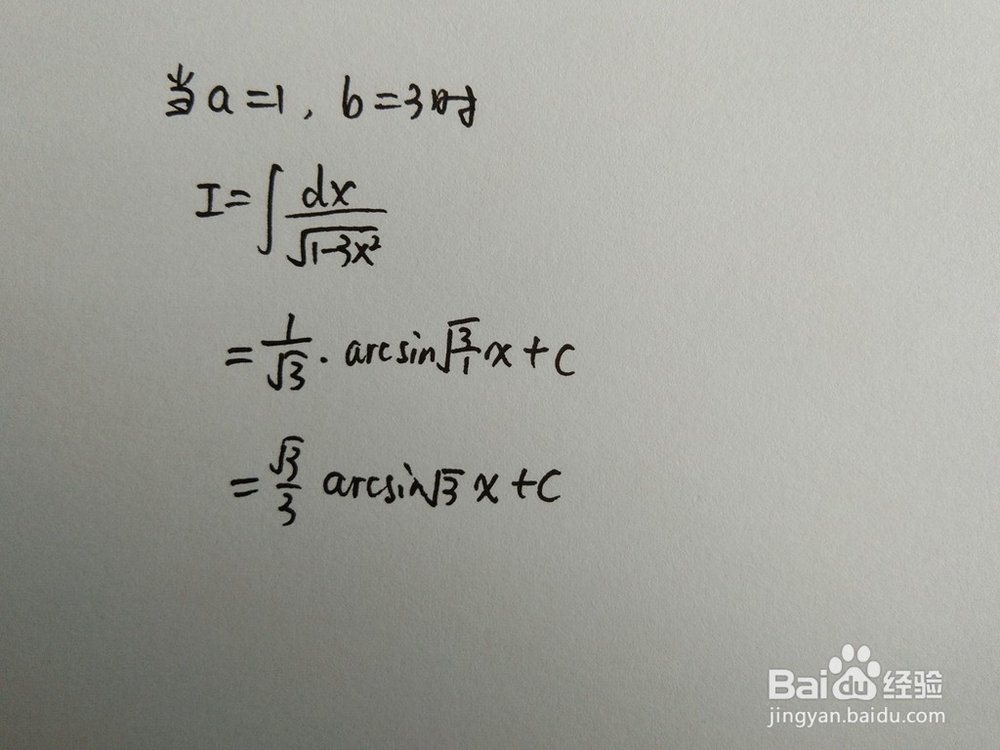 当a=1，b=3时
I=∫dx/√(1-3x²)
=1/√3·arcsin√(3/1)x+C
=√3/3 arcsin√3x+C
Baidu经验
jingyan.baidu.com